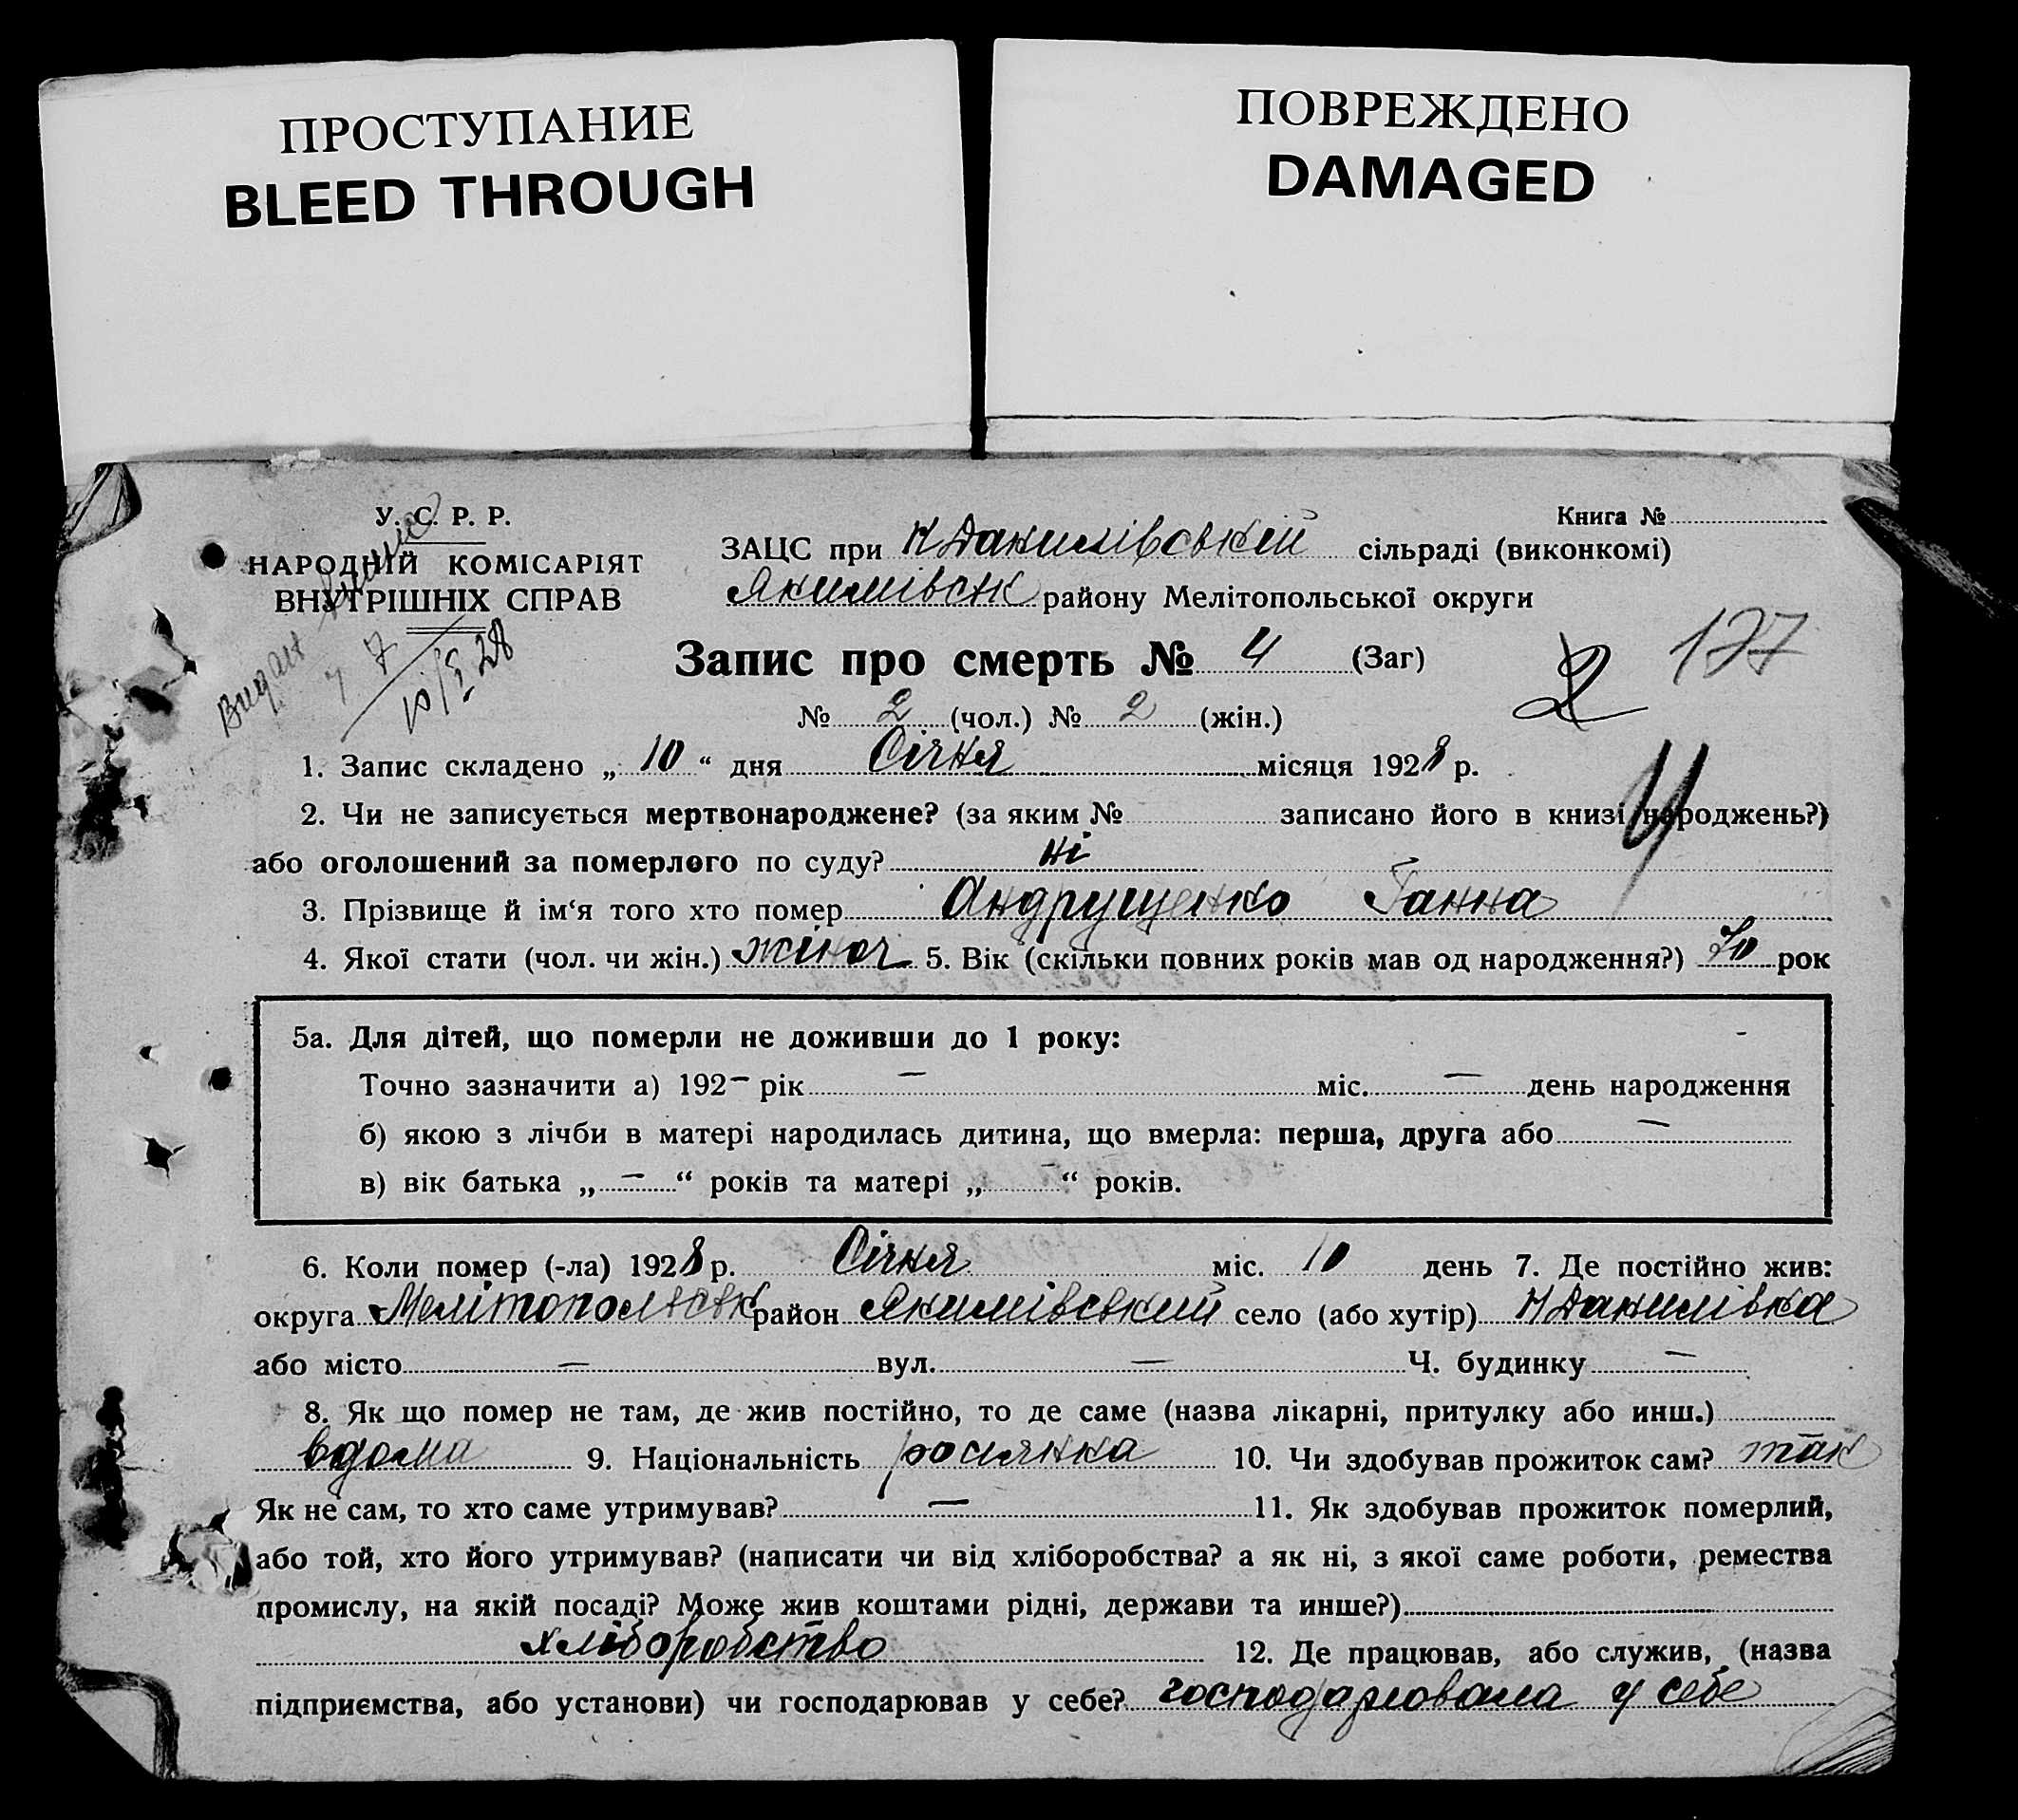 ПРОСТУПАНИЕ
BLEED THROUGH
ПОВРЕЖДЕНО
DAMAGED
У. С. Р. Р.
НАРОДНІЙ КОМІСАРІЯТ
ВНУТРІШНІХ СПРАВ
Видан
7 7
10/5 28
Книга №
ЗАЦС при Н Данилівській сільраді (виконкомі)
Якимівськ району Мелітопольської округи
Запис про смерть № 4 (Заг)
2 177
№ 2 (чол.) № 2 (жін.)
1. Запис складено „ 10 “ дня Січня місяця 1928 р.
2. Чи не записується мертвонароджене? (за яким № записано його в книзі народжень?)
або оголошений за померлого по суду? ні
3. Прізвище й ім‘я того хто помер Андрущенко Ганна
4. Якої стати (чол. чи жін.) жіноч 5. Вік (скільки повних років мав од народження?) 70 рок
5а. Для дітей, що померли не доживши до 1 року:
Точно зазначити а) 192– рік – міс. – день народження
б) якою з лічби в матері народилась дитина, що вмерла: перша, друга або –
в) вік батька „ – “ років та матері „ – “ років.
6. Коли помер (-ла) 1928 р. Січня міс. 10 день 7. Де постійно жив:
округа Мелітопольськ район Якимівський село (або хутір) Н Данилівка
або місто – вул. – Ч. будинку –
8. Як що помер не там, де жив постійно, то де саме (назва лікарні, притулку або инш.)
вдома 9. Національність росіянка 10. Чи здобував прожиток сам? так
Як не сам, то хто саме утримував? – 11. Як здобував прожиток померлий,
або той, хто його утримував? (написати чи від хліборобства? а як ні, з якої саме роботи, ремества
промислу, на якій посаді? Може жив коштами рідні, держави та инше?)
хліборобство 12. Де працював, або служив, (назва
підприємства, або установи) чи господарював у себе? господарювала у себе